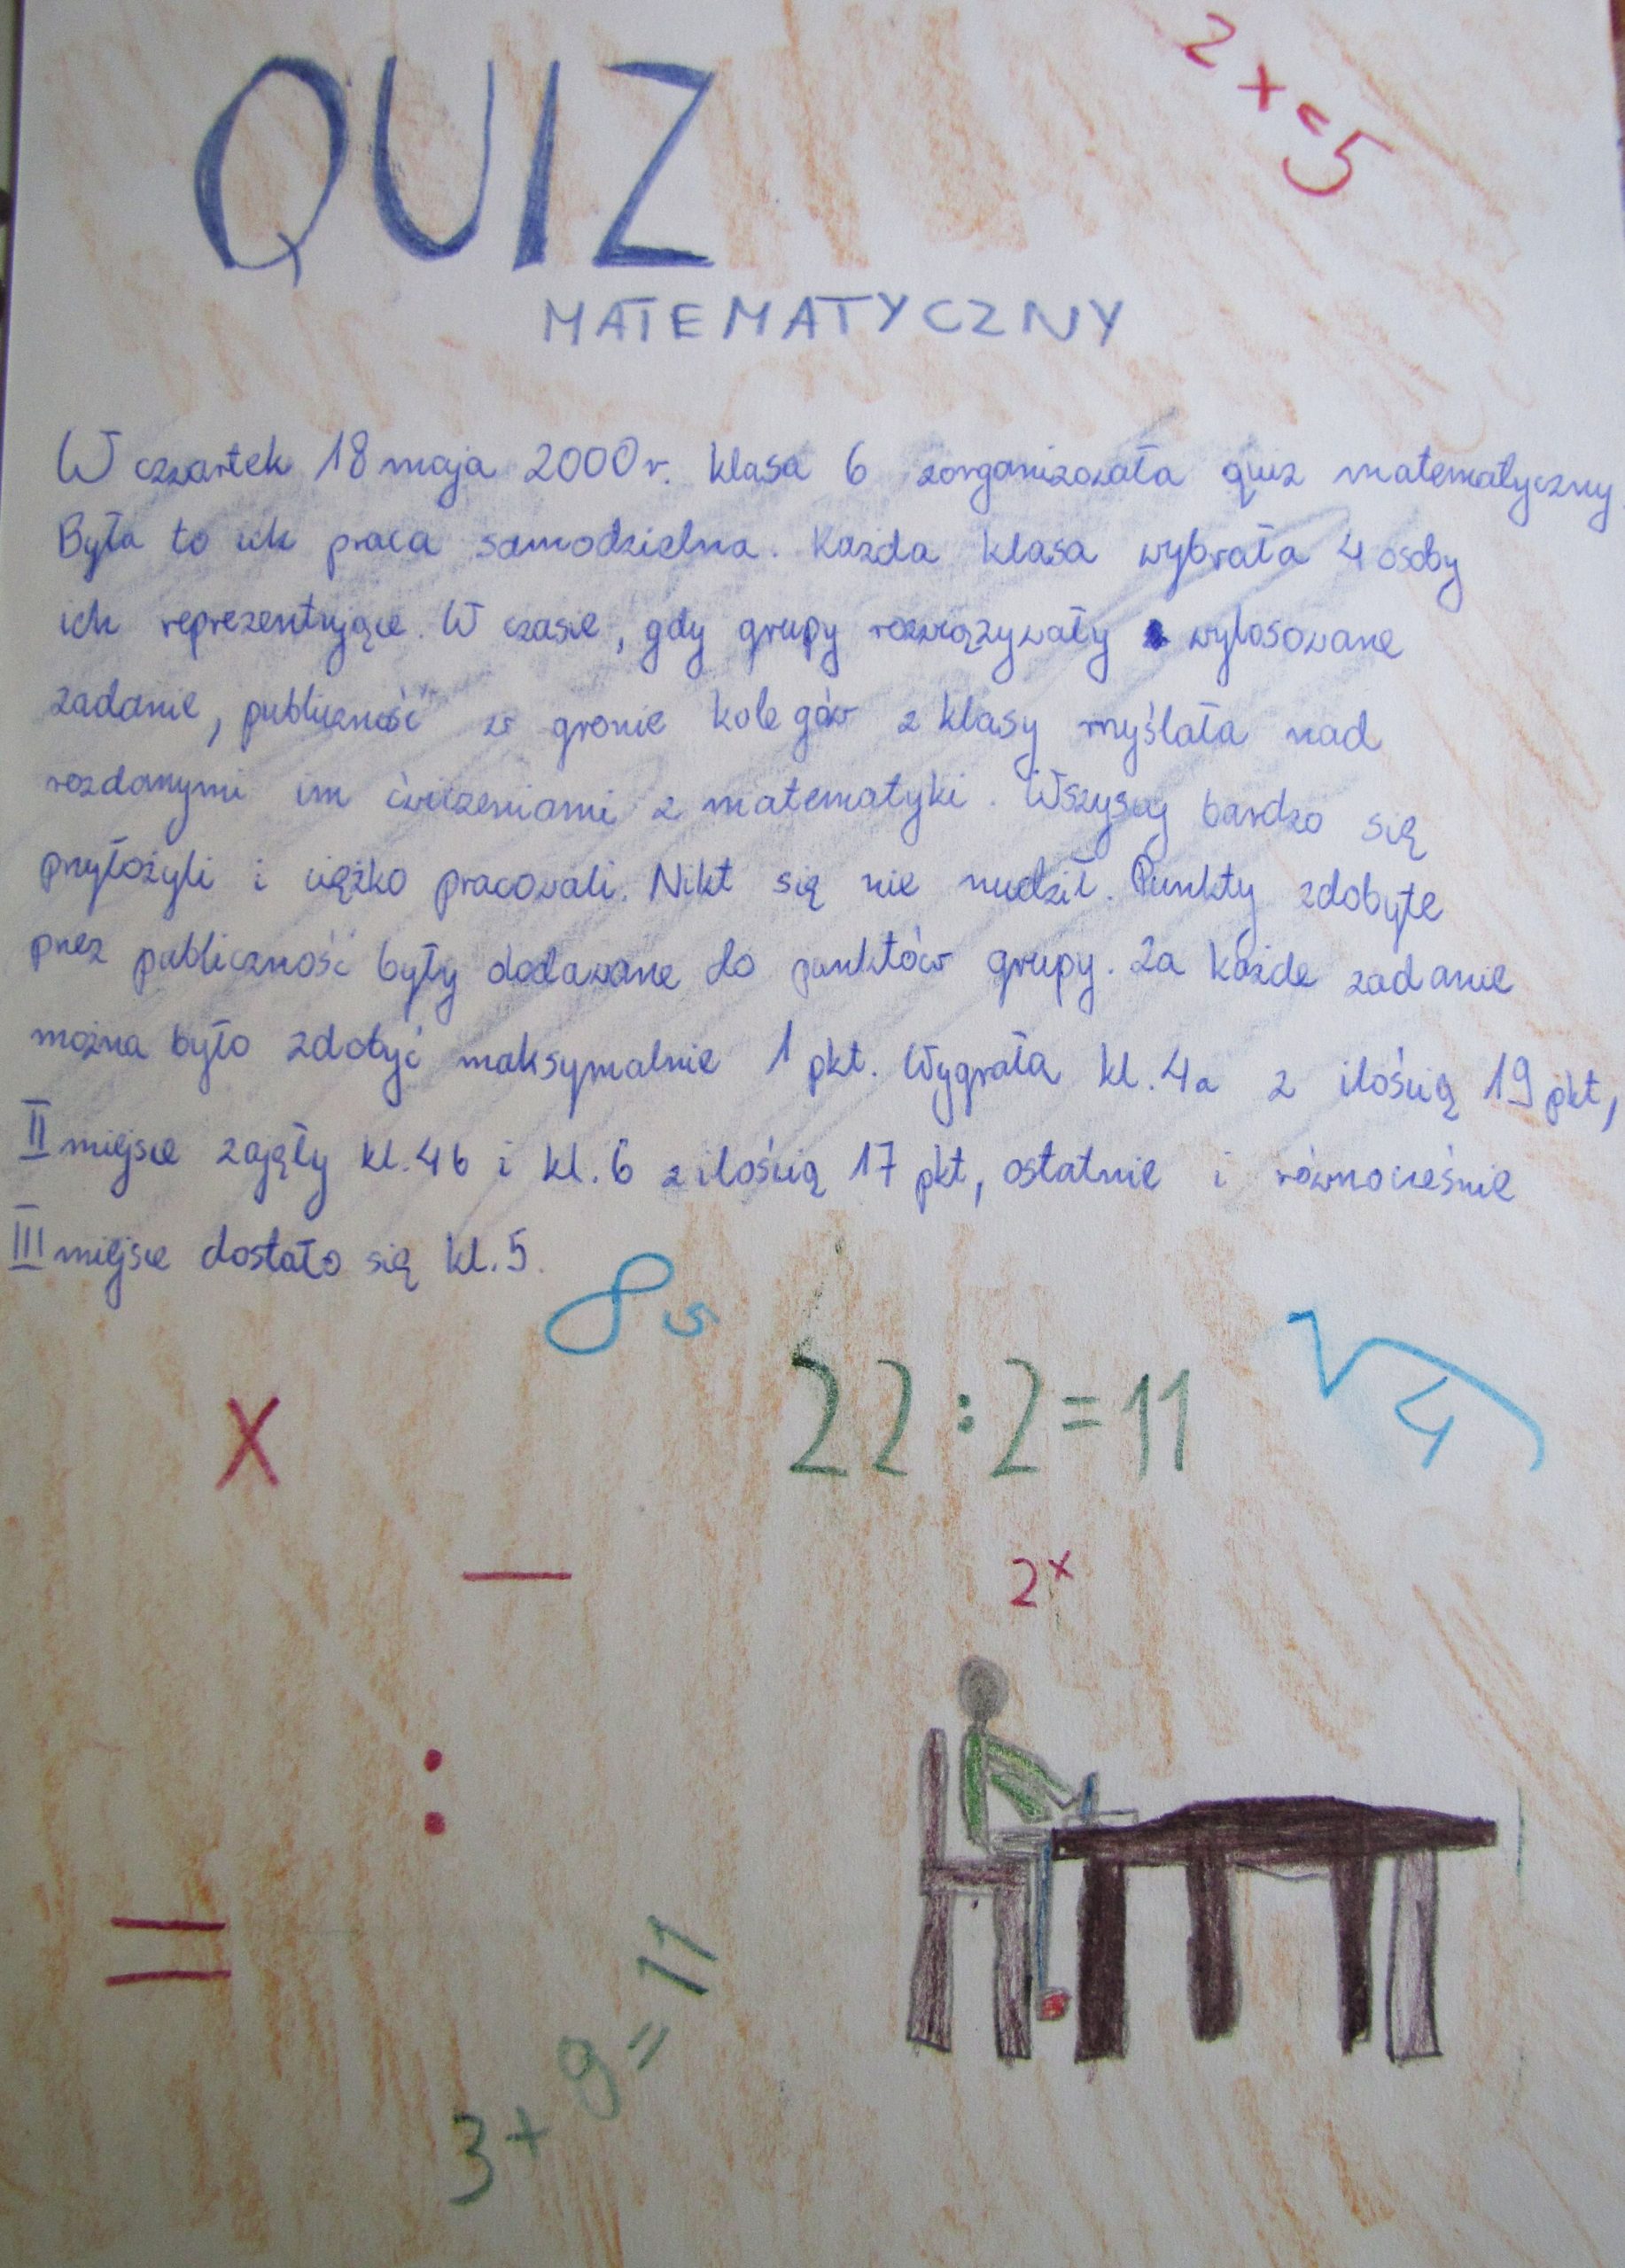 2x=5
QUIZ
MATEMATYCZNY
W czwartek 18 maja 2000r. klasa 6 zorganizowała quiz matematyczny.
Była to ich praca samodzielna. Każda klasa wybrała 4 osoby
ich reprezentujące. W czasie, gdy grupy rozwiązywały wylosowane
zadanie, publiczność w gronie kolegów z klasy myślała nad
rozdanymi im ćwiczeniami z matematyki. Wszyscy bardzo się
przyłożyli i ciężko pracowali. Nikt się nie nudził. Punkty zdobyte
przez publiczność były dodawane do punktów grupy. Za każde zadanie
można było zdobyć maksymalnie 1 pkt. Wygrała kl. 4a z ilością 19 pkt,
II miejsce zajęły kl. 4b i kl. 6 z ilością 17 pkt, ostatnie i równocześnie
III miejsce dostało się kl. 5.
8
22:2=11
√4
x
—
2ˣ
:
=
3+9=11